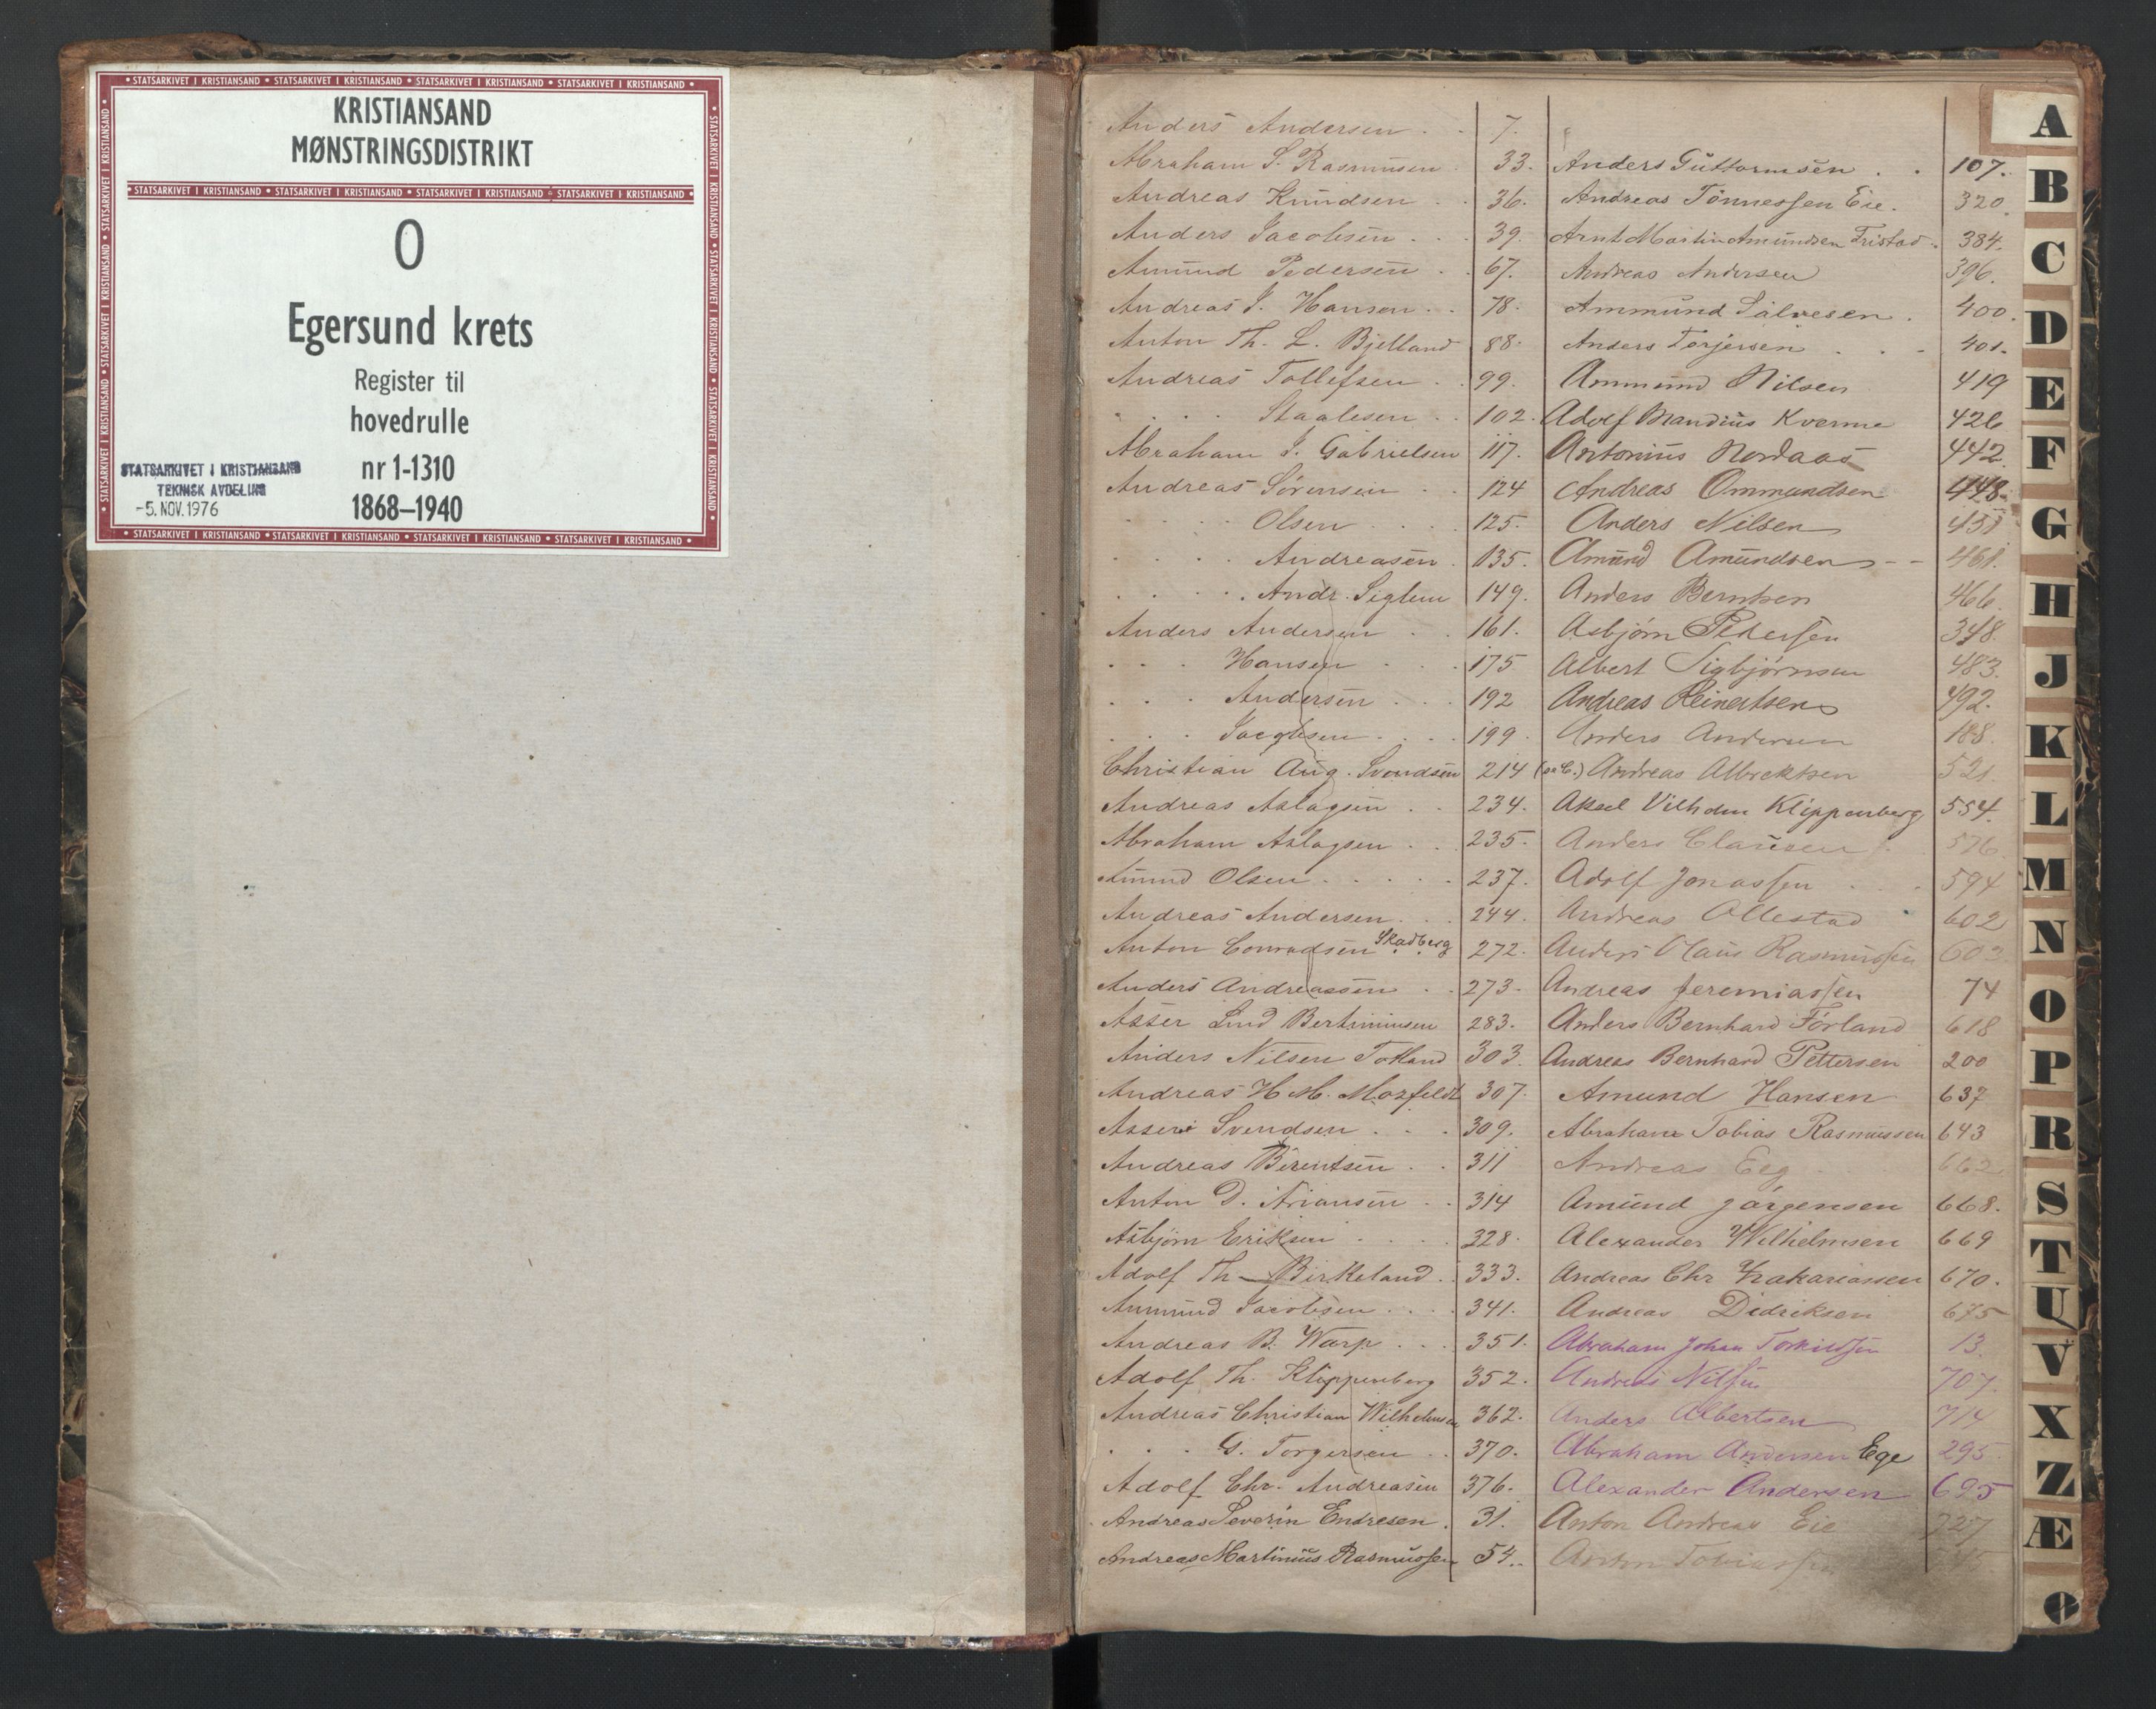 • STATSARKIVET I KRISTIANSAND • STATSARKIVET I KRISTIANSAND • STATSARKIVET I KRISTIANSAND • STATSARKIVET I KRISTIANSAND •
KRISTIANSAND
MØNSTRINGSDISTRIKT
• STATSARKIVET I KRISTIANSAND • STATSARKIVET I KRISTIANSAND • STATSARKIVET I KRISTIANSAND • STATSARKIVET I KRISTIANSAND •
O
Egersund krets
Register til
hovedrulle
nr 1-1310
1868–1940
STATSARKIVET I KRISTIANSAND
TEKNISK AVDELING
-5. NOV. 1976
• STATSARKIVET I KRISTIANSAND • STATSARKIVET I KRISTIANSAND • STATSARKIVET I KRISTIANSAND • STATSARKIVET I KRISTIANSAND •
Anders Andersen . . 7.
Abraham S. Rasmusen . 33.
Andreas Knudsen . . 36.
Anders Jacobsen . . . 39.
Amund Pedersen . . 67.
Andreas J. Hansen . . 78.
Anton Th. L. Bjelland 88.
Andreas Tollefsen . . 99.
. . . . Staalesen . . 102.
Abraham J. Gabrielsen 117.
Andreas Sörensen . . 124
. . . . Olsen . . . . 125.
. . . . Andreasen . 135.
. . . . . Andr. Seglem 149.
Anders Andersen . . 161.
. . . Hansen . . . 175
. . . Andersen . . . 192
. . . Jacobsen . . . . 199.
Christian Aug. Svendsen 214
Andreas Aslagsen . . 234.
Abraham Aslagsen . . . 235.
Amund Olsen . . . . . 237.
Andreas Andersen . . . 244.
Anton Conradsen Skadberg 272.
Anders Andreassen . . 273.
Asser Lund Bertiniusen 283.
Anders Nilsen Totland 303.
Andreas H. M. Mosfeldt 307.
Asser Svendsen . . . 309.
Andreas Berentsen . . 311
Anton D. Ariansen . . 314
Asbjørn Eriksen . . . . 328.
Adolf Th. Birkeland . . 333.
Ammund Jacobsen . . . . 341.
Andreas B. Warp . . . 351.
Adolf Th. Klippenberg 352.
Andreas Christian Wilhelmsen 362.
. . . G. Torgersen . . 370.
Adolf Chr. Andreasen 376.
Andreas Severin Endresen . 31.
Andreas Martinius Rasmussen 54.
Anders Guttormsen . . 107.
Andreas Tönnessen Eie . 320.
Arnt Martin Amundsen Tristad . 384.
Andreas Andersen 396.
Ammund Salvesen . 400.
Anders Torjersen . . . 401.
Ammund Nilsen 419
Adolf Mandius Kverme 426
Antonius Nordaas 442.
Andreas Ommundsen 448.
Anders Nilsen 451
Amund Amundsen - - 461.
Anders Berntsen 466.
Asbjörn Pedersen 348.
Albert Sigbjörnsen 483.
Andreas Reinertsen 492.
Anders Andersen 188.
Andreas Albrektsen 521.
Aksel Vilhelm Klippenberg 554.
Anders Clausen . 576
Adolf Jonassen . . 594
Andreas Ollestad 602
Anders Olaus Rasmussen 603
Andreas Jeremiassen 74
Anders Bernhard Förland 618
Andreas Bernhard Pettersen 200
Amund Hansen 637
Abraham Tobias Rasmussen 643
Andreas Eeg . 662
Amund Jörgensen 668.
Alexander Wilhelmsen 669
Andreas Chr Zakariassen 670.
Andreas Didriksen 675
Abraham Johan Torkildsen 13.
Andreas Nilsen 707.
Anders Albertsen 714
Abraham Andersen Ege 295
Alexander Andersen 695
Anton Andreas Eie 727
Anton Tobiassen
A
B
C
D
E
F
G
H
J
K
L
M
N
O
P
R
S
T
U
V
X
Z
Æ
Ø